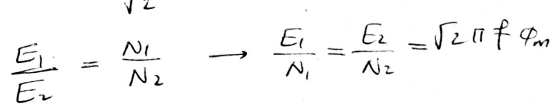 √2
E₁/E₂ = N₁/N₂ → E₁/N₁ = E₂/N₂ = √2 π f Φm